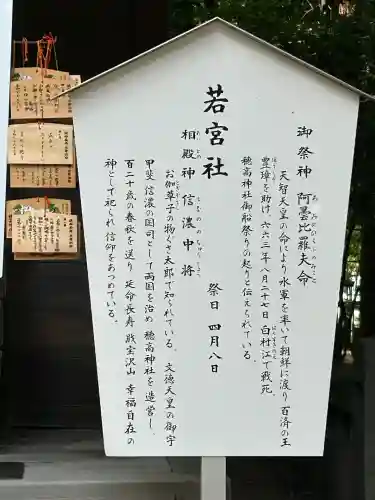 若宮社
御祭神 阿曇比羅夫命
天智天皇の命により水軍を率いて朝鮮に渡り百済の王
豊璋を助け、六六三年八月二十七日白村江で戦死。
穂高神社御船祭りの起りと伝えられている。
祭日 四月八日
相殿神 信濃中将
お伽草子の物ぐさ太郎で知られている。文徳天皇の御宇
甲斐信濃の国司として両国を治め穂高神社を造営し、
百二十歳の春秋を送り延命長寿戝宝沢山幸福自在の
神として祀られ信仰をあつめている。